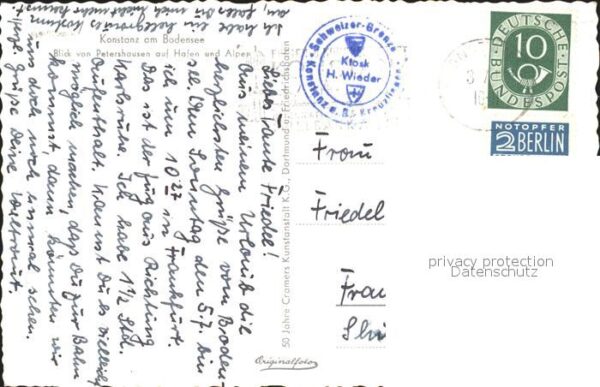 Konstanz am Bodensee
Blick von Petershausen auf Hafen und Alpen
Liebe Tante Friedel!
Aus meinem Urlaub die
herzlichsten Grüße vom Boden
see. Den Sonntag den 5.7. bin
ich um 10 27 in Frankfurt.
Das ist der Zug aus Richtung
Karlsruhe. Ich habe 1 1/2 Std.
Aufenthalt. Kannst Du es vielleicht
möglich machen, daß Du zur Bahn
kommst, dann könnten wir
uns doch noch einmal sehen.
Viele Grüße Deine
Ich habe ein hellgraues Kostüm
an, falls Du mich nicht mehr kennst
50 Jahre Cramers Kunstanstalt K.G., Dortmund u. Friedrichshafen
Originalfoto
Schweizer-Grenze
Kiosk
H. Wieder
Konstanz a. B. Kreuzlingen
DEUTSCHE
BUNDESPOST
10
NOTOPFER
2 BERLIN
Frau
Friedel
Frau
privacy protection
Datenschutz